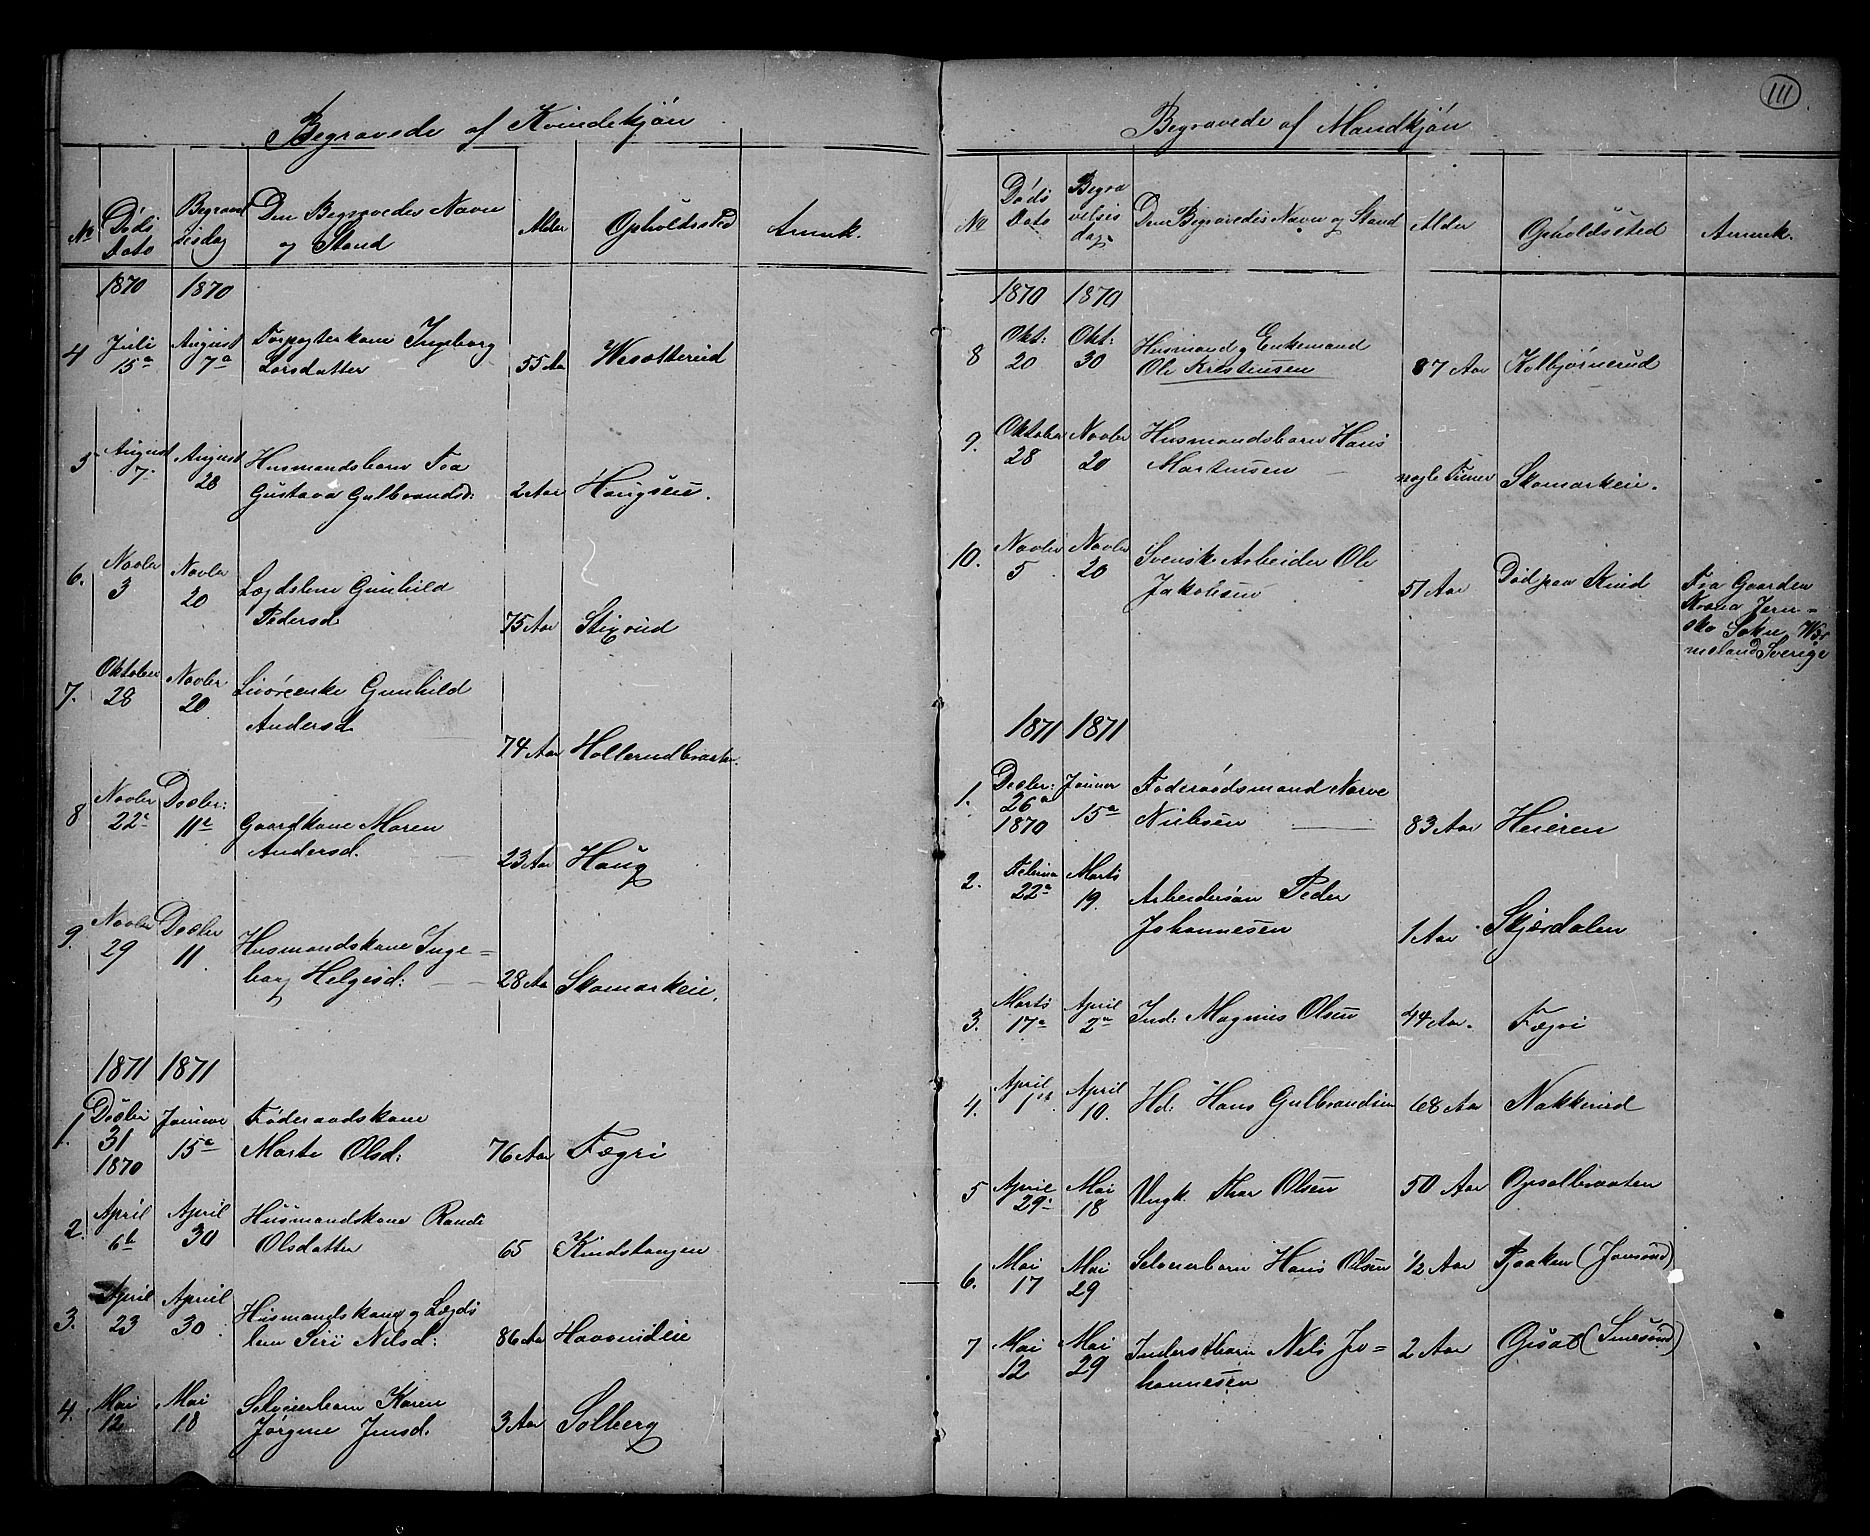 Begravede af Kvindekjøn
No
Døds
Dato
Begravel
sesdag
Den Begravedes Navn
og Stand
Alder
Opholdssted
Anmk.
1870 1870
4 Juli 15a August 7a Forpagterkone Ingeborg
Larsdatter 55 Aar
5 August 7 August 28 Husmandsbarn
Gustava Gulbrandsd: 2 Aar Haugseie.
6. Novbr 3 Novbr 20 Lægdslem Gunhild
Pedersd 75 Aar Stixrud
7. Oktober 28 Novbr 20 Gunhild
Andersd 74 Aar Hollerudbraaten.
8 Novbr 22 Decbr: 11 Gaardkone Maren
Andersd. 23 Aar Haug
9. Novbr 29 Decbr 11 Husmandskone Inge=
borg Helgesd: 28 Aar Skamarkeie.
1871 1871
1. Decbr 31 1870 Januar 15a Føderaadskone
Marte Olsd: 76 Aar Fægri
2. April 6 April 30 Husmandskone Randi
Olsdatter 65 Kindstangen
3. April 23 April 30 Husmandskone og Lægds
lem Siri Nilsd: 86 Aar
4. Mai 12 Mai 18 Selveierbarn Karen
Jørgine Jensd. 3 Aar Solberg
111
Begravede af Mandkjøn
No
Døds
Dato
Begra
velses
dag
Den Begravedes Navn og Stand
Alder
Opholdssted
Anmk.
1870 1870
8 Okt: 20 Okt: 30 Husmand og Enkemand
Ole Kristensen 87 Aar Kolbjørnerud
9. Oktober 28 Novbr 20 Husmandsbarn Hans
Martinsen nogle Timer Skamarkeie.
10. Novbr 5 Novbr 20 Svensk Arbeider Ole
Jakobsen 51 Aar Død paa Kind Fra Gaarden
Sokn, Wær
meland Sverige
1871 1871
1. Decbr: 26a 1870 Januar 15a Føderaadsmand Narve
Nielsen 83 Aar Heieren
2. Februar 22a Marts 19. Arbeidersøn Peder
Johannesen 1 Aar Skjærdalen
3. Marts 17a April 2a Ind: Magnus Olsen 44 Aar. Fægri
4. April 1 April 10. Hd: Hans Gulbrandsen 68 Aar Nakkerud
5 April 29 Mai 18 Ungk. Thor Olsen 50 Aar Opsalbraaten
6. Mai 17 Mai 29 Selveierbarn Hans Olsen 1/2 Aar Pjaaken (Jonsrud)
7 Mai 12 Mai 29 Inderstbarn Nels Jo=
hannesen 2 Aar Opsal